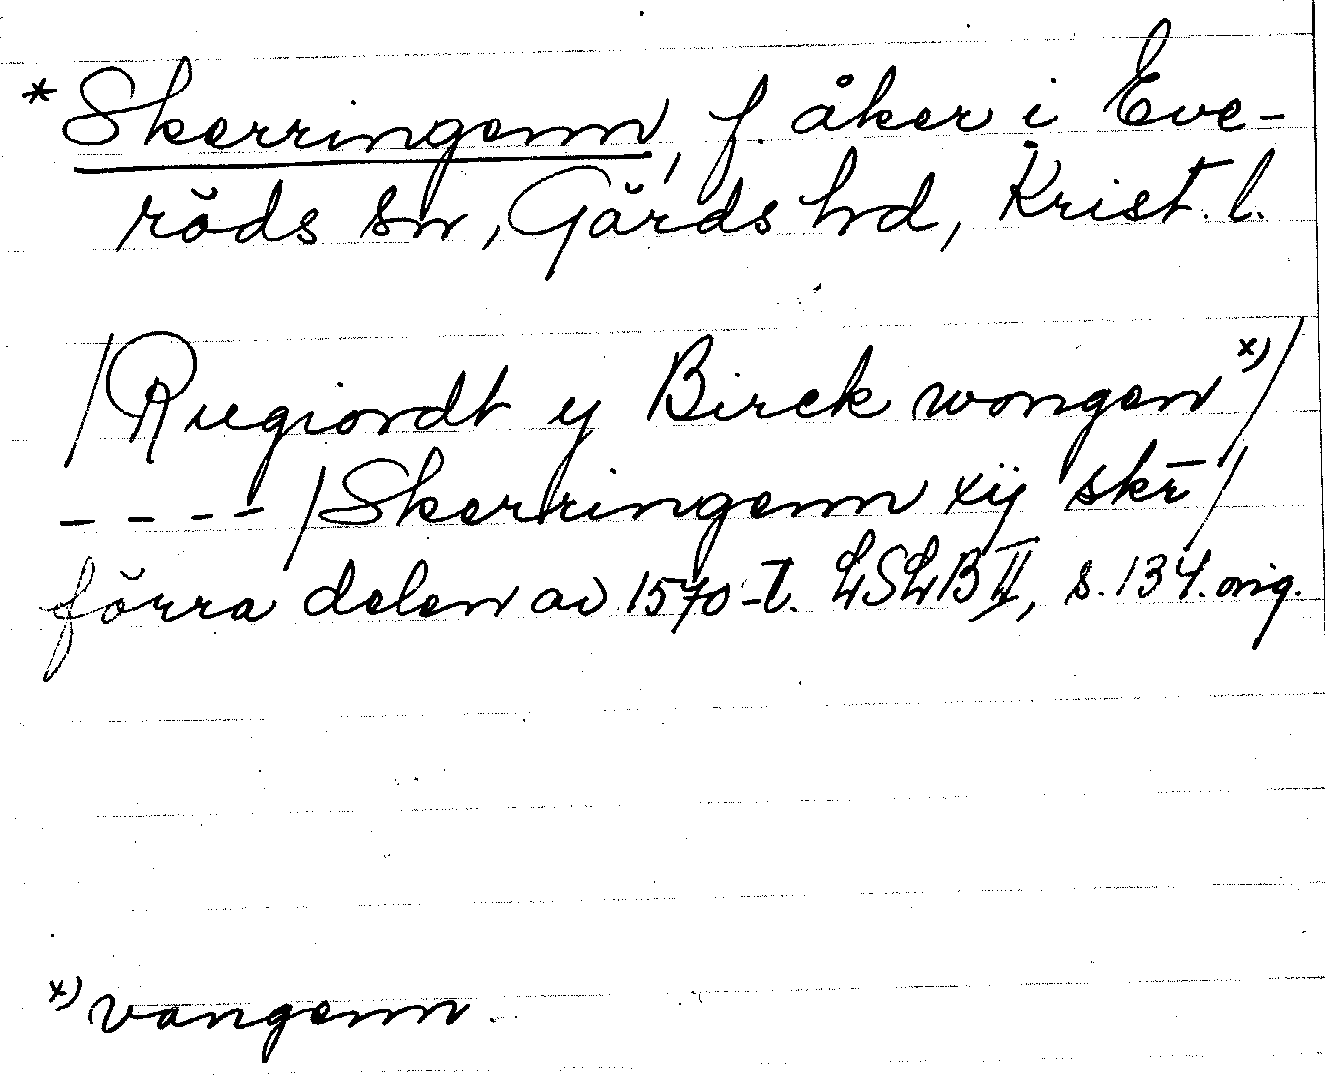 * Skerringenn, f. åker i Eve-
röds sn, Gärds hd, Krist. l.
/Rugiordt y Birck wongen x)/
- - - - /Skerringenn xij skr̄/
förra delen av 1570-t. LSLB II, s. 134. orig.
x) vangenn.